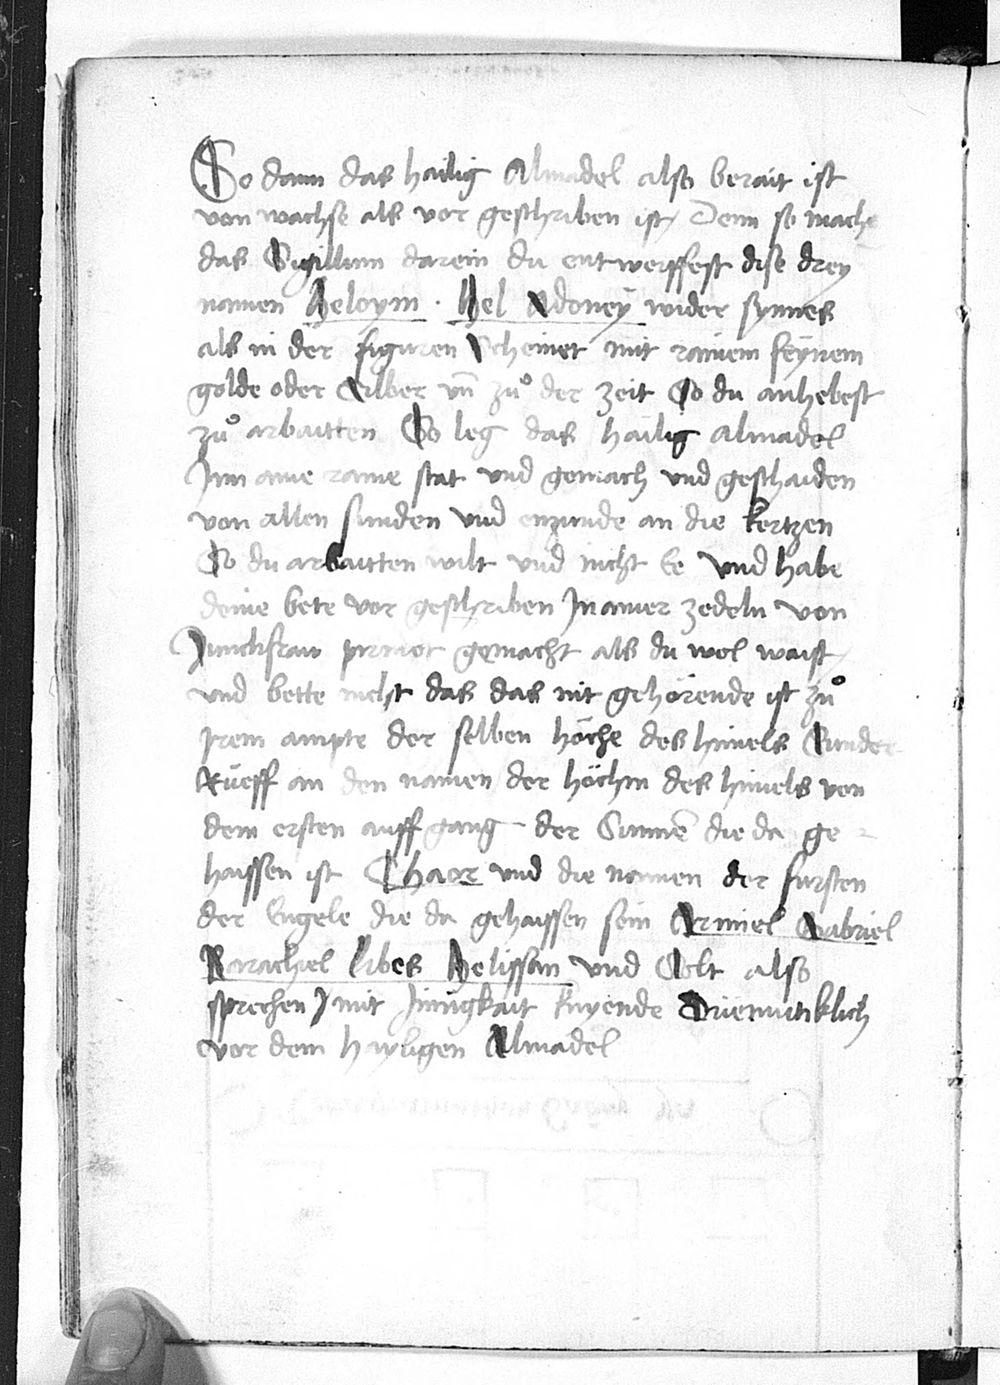 So dann das hailig Almadel also berait ist
von wachse als vor geschriben ist Denn so mach
das Sigillum darein du entwerffest dise drey
namen Heloym · Hel Adoney wider synnes
als in der figuren Scheinet mit rainem feynem
golde oder Silber vn̄ zuͦ der zeit So du anhebest
zuͦ arbaitten So leg das hailig Almadel
Inn aine raine stat vnd gemach vnd geschaiden
von allen sunden vnd enzunde an die kertzen
So du arbaitten wilt vnd nicht Ee vnd habe
deine bete vor geschriben In ainer zedeln von
Junckfraw pirmet gemacht als du wol waist
vnd bette nicht das das nit gehörende ist zuͦ
irem ampte der selben höche des himels Sunder
Rüeff an den namen der höchin des himels von
dem ersten auff gang der Sunne die da ge
haissen ist Chaor vnd die namen der fursten
der Engele die da gehaissen sein Armiel Gabriel
Barachiel Libes Helissan vnd Solt also
sprechen mit Innigkait knyende Diemutiklich
vor dem hayligen Almadel